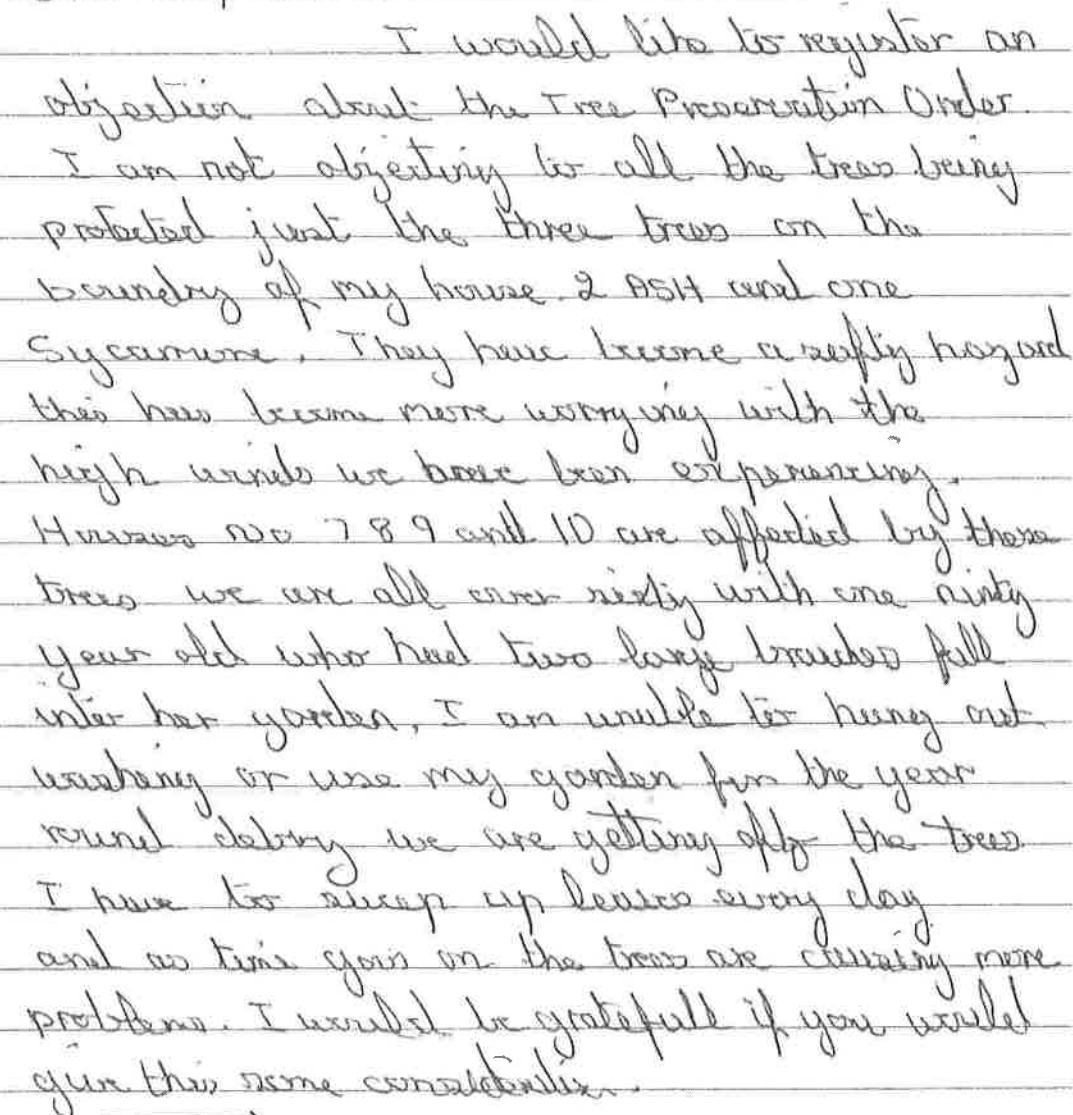 I would like to register an
objection about the Tree Preservation Order.
I am not objecting to all the trees being
protected just the three trees on the
boundry of my house 2 ASH and one
Sycamore. They have become a saftiy hazard
this has become more worrying with the
high winds we have been experiencing.
Houses No 7 8 9 and 10 are affected by these
trees we are all over sixtiy with one ninty
year old who had two large branches fall
inter her garden, I am unable to hang out
washing or use my garden for the year
round debry we are getting off the trees
I have to sweep up leaves every day
and as time gois on the trees are causing more
problems. I would be gratefull if you would
give this some